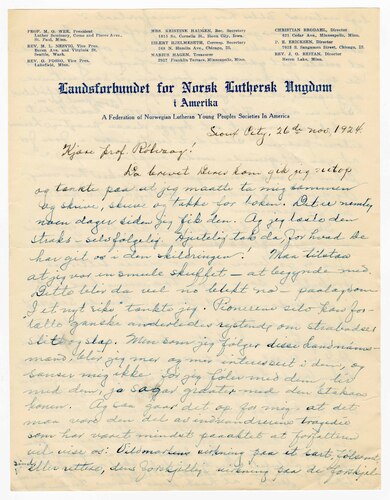 PROF. M. O. WEE, President
Luther Seminary, Como and Pierce Aves.,
St. Paul, Minn.
REV. M. L. NESVIG, Vice Pres.
Seattle, Wash.
REV. O. FOSSO, Vice Pres.
Lakefield, Minn.
MRS. KRISTINE HAUGEN, Rec. Secretary
1815 So. Cornelia St., Sioux City, Iowa
MARIUS HAGEN, Treasurer
2947 Franklin Terrace, Minneapolis, Minn.
CHRISTIAN BRODAHL, Director
625 Cedar Ave., Minneapolis, Minn.
P. K. ERICKSEN, Director
REV. J. O. REITAN, Director
Haven Lake, Minn.
Landsforbundet for Norsk Luthersk Ungdom
i Amerika
A Federation of Norwegian Lutheran Young Peoples Societies In America
Sioux City, 26th nov. 1924
Kjære prof. Rölvaag!
Da brevet Deres kom gik jeg netop
og tænkte paa at jeg maatte ta mig sammen
og skrive, skrive og takke for boken. Det er nemlig
noen dager siden jeg fik den. Og jeg læste den
straks – selvfølgelig. Hjertelig tak da for hvad De
har git os i den skildringen! Maa tilstaa
at jeg var en smule skuffet – at begynde med.
Dette blir da vel no blekt no – paategom
"I et nyt rike" tænkte jeg. Pionerens selv har for-
talt ganske anderledes
slit og slap. Men som jeg følger disse landnams-
mænd blir jeg mer og mer interessert i dem, og
sanser mig ikke før jeg føler med dem, ler
med dem, ja sogar græter med den stakars
konen. Og saa gaar det op for mig at det
maa være den del av indvandrerens tragedie
som har været mindst paaaktet at forfatteren
vil vise os: Vildmarkens virkning paa et sart, følsomt
sind
eller rettere, dens forskjellige virkning paa de forskjel-